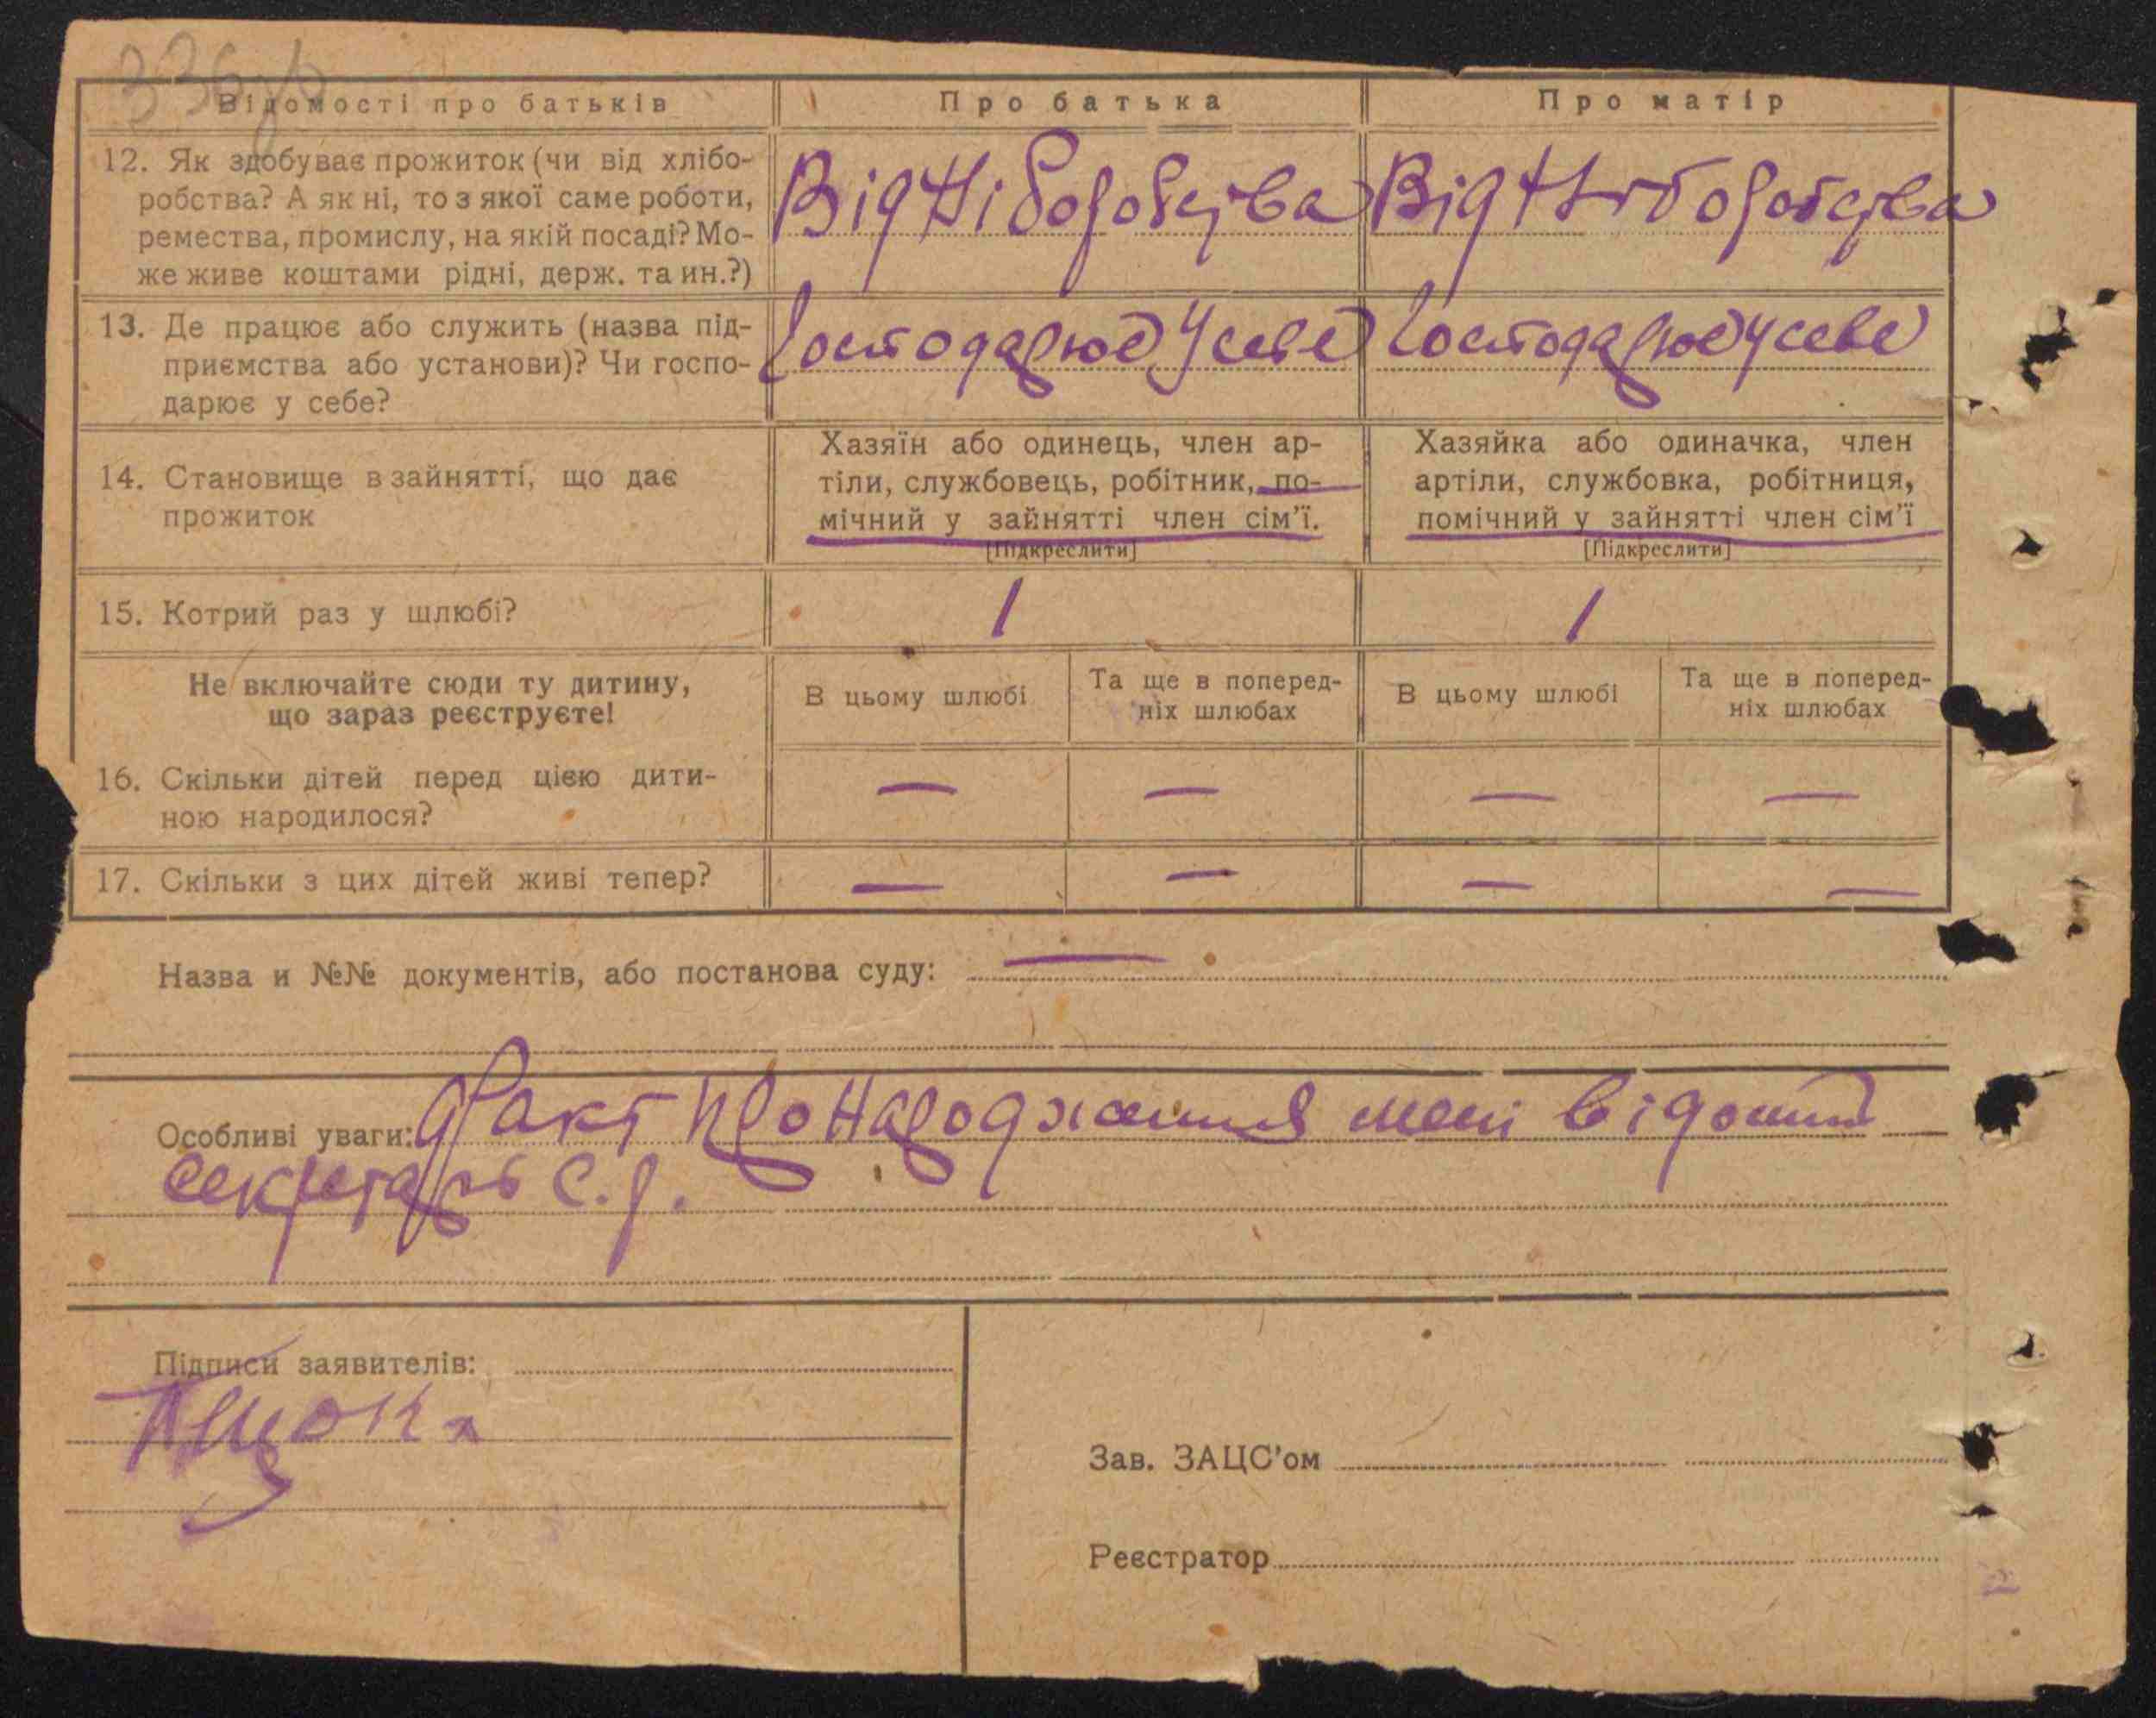 Відомості про батьків
Про батька
Про матір
12. Як здобуває прожиток (чи від хлібо-
робства? А як ні, то з якої саме роботи,
ремества, промислу, на якій посаді? Мо-
же живе коштами рідні, держ. та ин.?)
Від
Від
13. Де працює або служить (назва під-
приємства або установи)? Чи госпо-
дарює у себе?
Господарює у себе
Господарює у себе
14. Становище в зайнятті, що дає
прожиток
Хазяїн або одинець, член ар-
тіли, службовець, робітник, по-
мічний у зайнятті член сім'ї.
[Підкреслити]
Хазяйка або одиначка, член
артіли, службовка, робітниця,
помічний у зайнятті член сім'ї
[Підкреслити]
15. Котрий раз у шлюбі?
1
1
Не включайте сюди ту дитину,
що зараз реєструєте!
В цьому шлюбі
Та ще в поперед-
ніх шлюбах
В цьому шлюбі
Та ще в поперед-
ніх шлюбах
16. Скільки дітей перед цією дити-
ною народилося?
— — — —
17. Скільки з цих дітей живі тепер?
— — — —
Назва и №№ документів, або постанова суду: —
Особливі уваги: Факт про народження мені відомий
секретарь с.р.
Підписи заявителів:
Зав. ЗАЦС'ом
Реєстратор